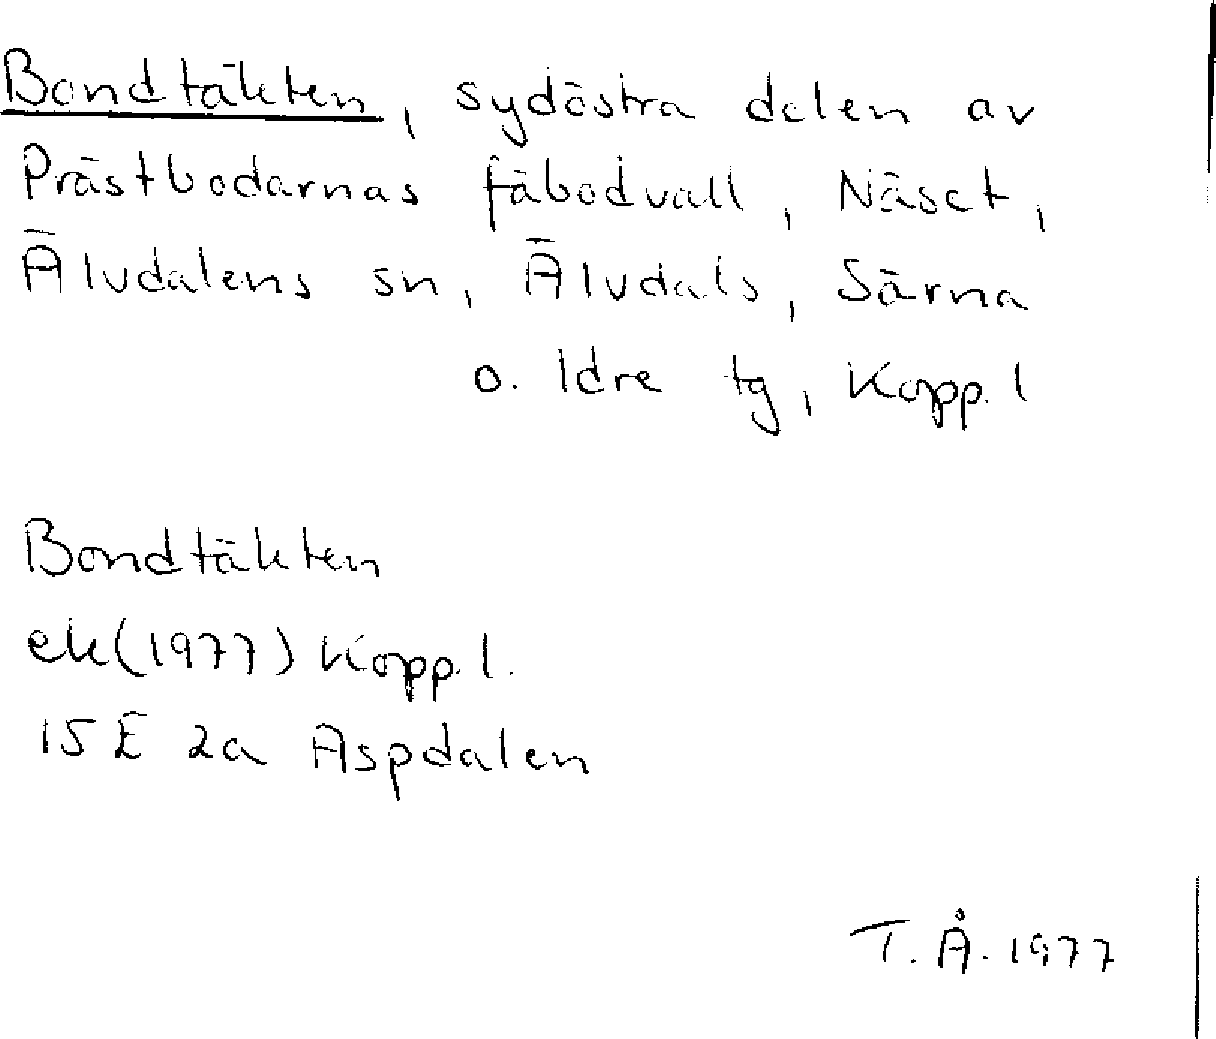 Bondtäkten, sydöstra delen av
Prästbodarnas fäbodvall, Näset,
Älvdalens sn, Älvdals, Särna
o. Idre tg, Kopp. l
Bondtäkten
ek (1977) Kopp. l.
15 E 2a Aspdalen
T. Å. 1977